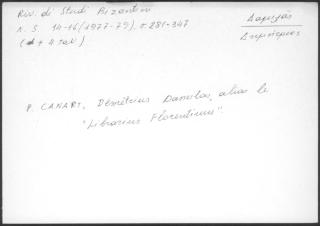 Riv. di Studi Bizantini
N. S. 14-16 (1977-79), σ. 281-347
(+ 4 πιν.)
Δαμιλάς
Δημήτριος
P. CANART, Démétrius Damilas, alias le
"Librarius Florentinus".